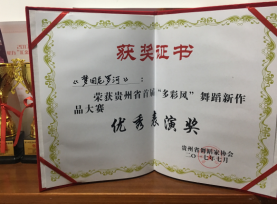 获奖证书
《梦回尼罗河》：
荣获贵州省首届“多彩风”舞蹈新作
品大赛
优秀表演奖
贵州省舞蹈家协会
二〇一七年七月